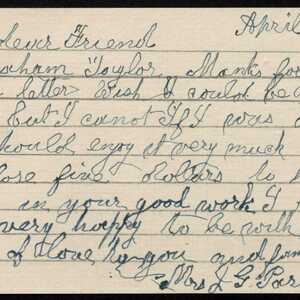 April
Dear Friend
Graham Taylor Thanks for
letter Wish I could be
But I canot If I was
should enjoy it very much
five dollars to
in your good work I
very happy to be with
of love to you and
Mrs J G Par